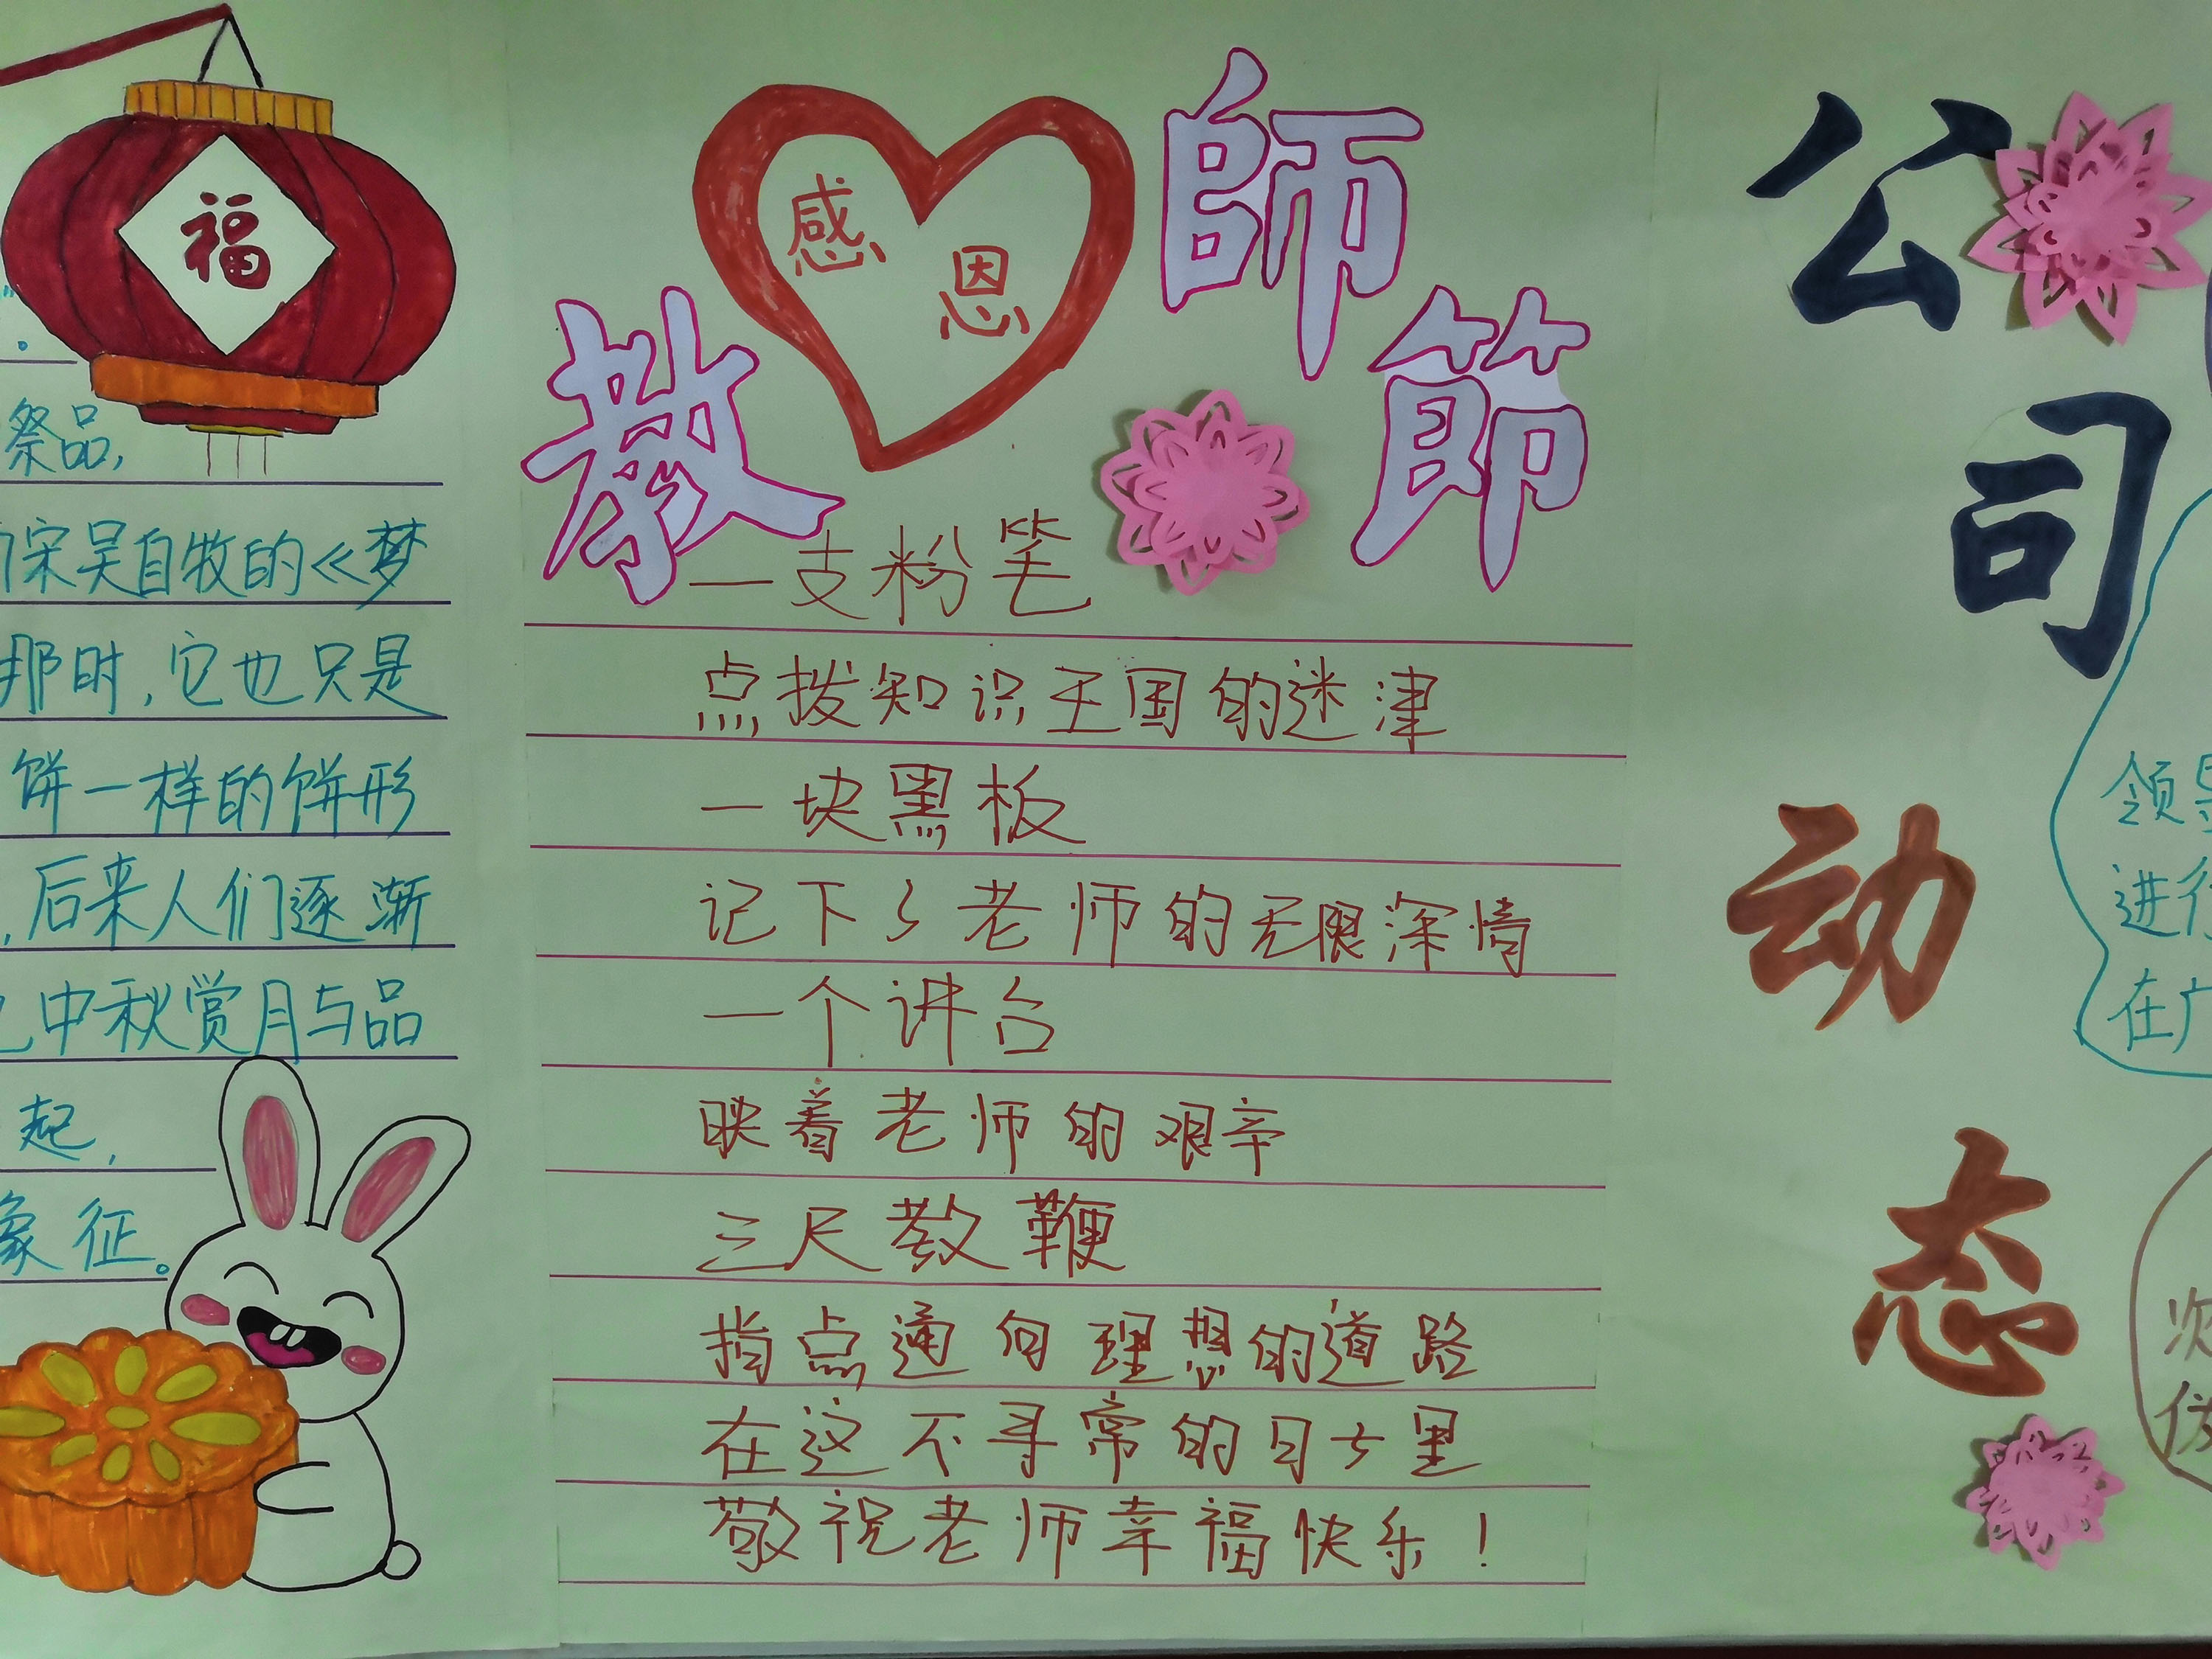 福
祭品,
宋吴自牧的《梦
那时,它也只是
饼一样的饼形
,后来人们逐渐
中秋赏月与品
起,
象征。
感恩
教師節
一支粉笔
点拨知识王国的迷津
一块黑板
记下了老师的无限深情
一个讲台
映着老师的艰辛
三尺教鞭
指点通向理想的道路
在这不寻常的日子里
敬祝老师幸福快乐!
公司动态
领导
进行
在广
次